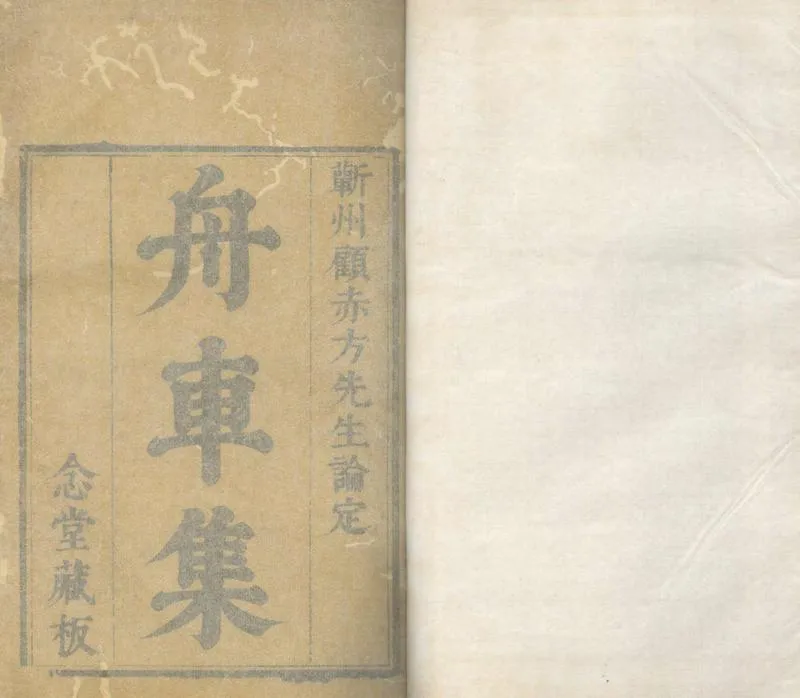 蘄州顧赤方先生論定
舟車集
念堂藏板